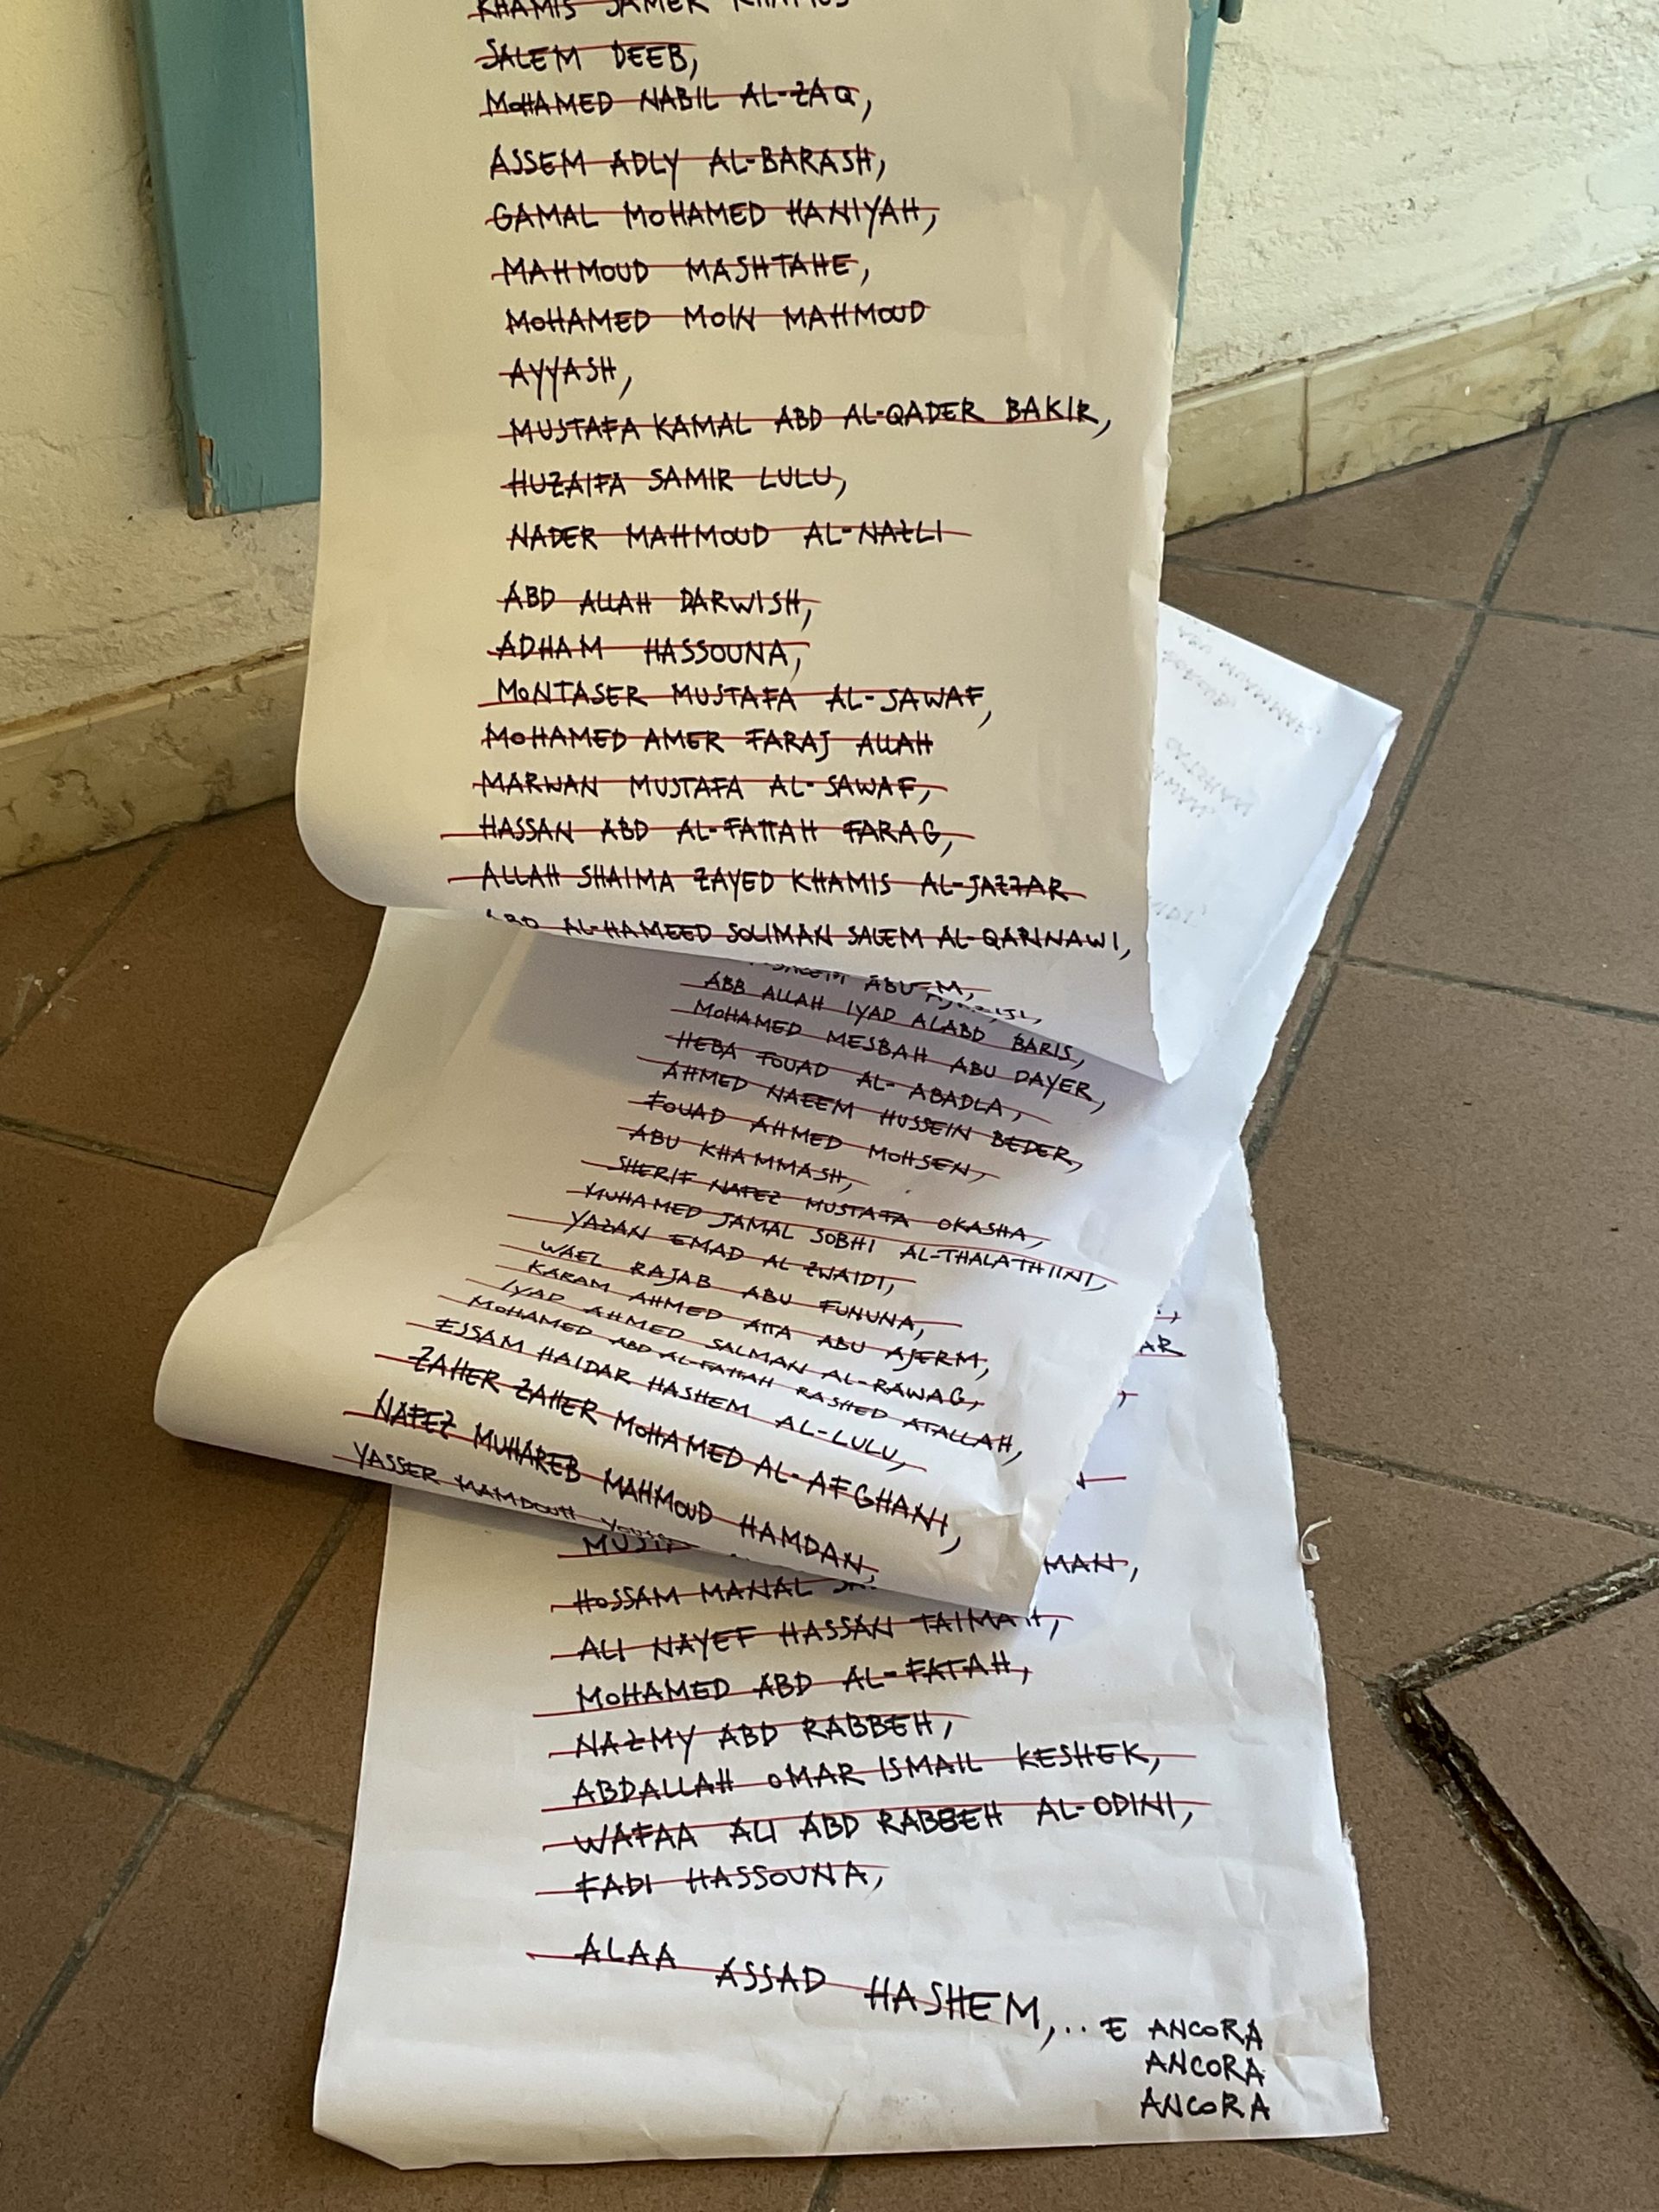 SALEM DEEB,
MOHAMED NABIL AL-ZAQ,
ASSEM ADLY AL-BARASH,
GAMAL MOHAMED HANIYAH,
MAHMOUD MASHTAHE,
MOHAMED MOIN MAHMOUD
AYYASH,
MUSTAFA KAMAL ABD AL-QADER BAKIR,
HUZAIFA SAMIR LULU,
NADER MAHMOUD AL-NAZLI
ABD ALLAH DARWISH,
ADHAM HASSOUNA,
MONTASER MUSTAFA AL-SAWAF,
MOHAMED AMER FARAJ ALLAH
MARWAN MUSTAFA AL-SAWAF,
HASSAN ABD AL-FATTAH FARAG,
ALLAH SHAIMA ZAYED KHAMIS AL-JAZZAR
ABD AL-HAMEED SOLIMAN SALEM AL-QARINAWI,
ABU
ABB ALLAH IYAD ALABD BARIS,
MOHAMED MESBAH ABU DAYER,
HEBA FOUAD AL-ABADLA,
AHMED NAEEM HUSSEIN BEDER,
FOUAD AHMED MOHSEN,
ABU KHAMMASH,
SHERIF NAFEZ MUSTAFA OKASHA,
MUHAMED JAMAL SOBHI AL-THALATHIINI,
YAZAN EMAD AL ZWAIDI,
WAEL RAJAB ABU FUNUNA,
KARAM AHMED ATTA ABU AJERM,
IYAD AHMED SALMAN AL-RAWAG,
MOHAMED ABD AL-FATTAH RASHED ATALLAH,
ESSAM HAIDAR HASHEM AL-LULU,
ZAHER ZAHER MOHAMED AL-AFGHANI,
NAFEZ MUHAREB MAHMOUD HAMDAN,
YASSER MAMDOUH
HOSSAM MANAL
ALI NAYEF HASSAN TAIMAH,
MOHAMED ABD AL-FATAH,
NAZMY ABD RABBEH,
ABDALLAH OMAR ISMAIL KESHEK,
WAFAA ALI ABD RABBEH AL-ODINI,
FADI HASSOUNA,
ALAA ASSAD HASHEM,... E ANCORA
ANCORA
ANCORA